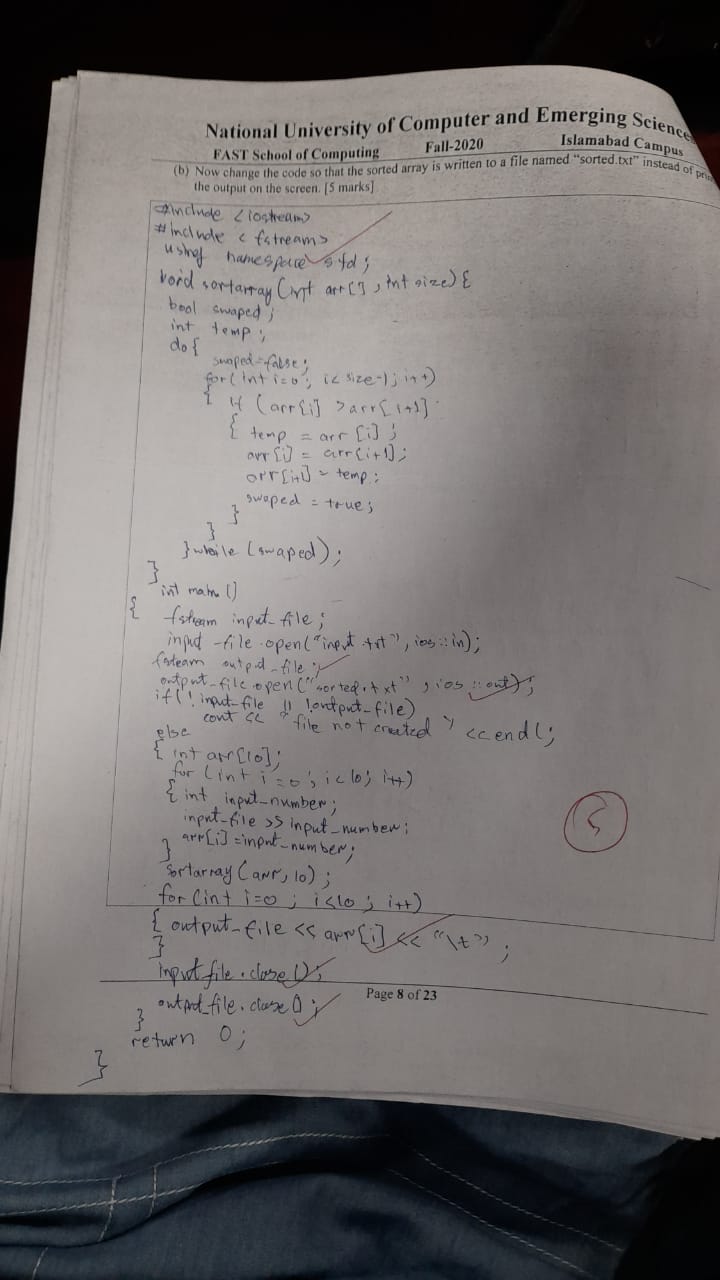 National University of Computer and Emerging Sciences
FAST School of Computing Fall-2020 Islamabad Campus
(b) Now change the code so that the sorted array is written to a file named "sorted.txt" instead of
the output on the screen. [5 marks]
#include <iostream>
#include < fstream>
using namespace std;
void sortarray (int arr[], int size) {
bool swaped;
int temp;
do {
swaped=false;
for(int i=0; i< size-1; i++)
{ if (arr[i] > arr[i+1]
{ temp = arr [i];
arr [i] = arr[i+1];
arr[i+1] = temp;
swaped = true;
}
}
} while (swaped);
}
int main ()
{ fstream input_file;
input_file.open("input.txt", ios::in);
fstream output_file;
output_file.open("sorted.txt", ios::out);
if(! input_file || !output_file)
cout << "file not created" <<endl;
else
{ int arr[10];
for (int i=0; i<10; i++)
{ int input_number;
input_file >> input_number;
arr[i] =input_number;
}
sortarray (arr, 10);
for (int i=0 ; i<10 ; i++)
{ output_file << arr[i] << "\t";
}
input_file.close();
Page 8 of 23
output_file.close();
}
return 0;
}
5